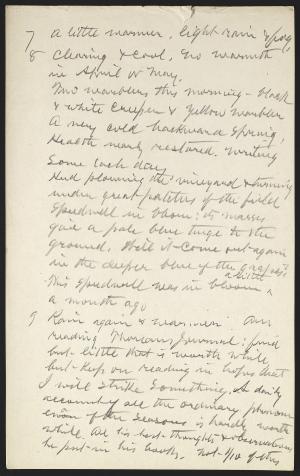 7 a little warmer, light rain & fog,
8 Clearing & cool, no warmth
in April or May.
Two warblers this morning - black
& white Creeper & Yellow warbler
A very cold backward Spring,
Health nearly restored. Writing
Some each day,
Hud plowing the vineyard & turning
under great patches of the field
Speedwell in bloom; its masses
give a pale blue tinge to the
ground. Will it come out again
in the deeper blue of the grapes?
This Speedwell was in bloom a little
a month ago
9 Rain again & warmer. Am
reading Thoreau's Journal: find
but little that is worth while,
but keep on reading in hopes that
I will strike something, A daily
accounting all the ordinary phenomena
even of the Seasons is hardly worth
while. All his best thoughts & observations
he put in his books. Not 1/10 of this